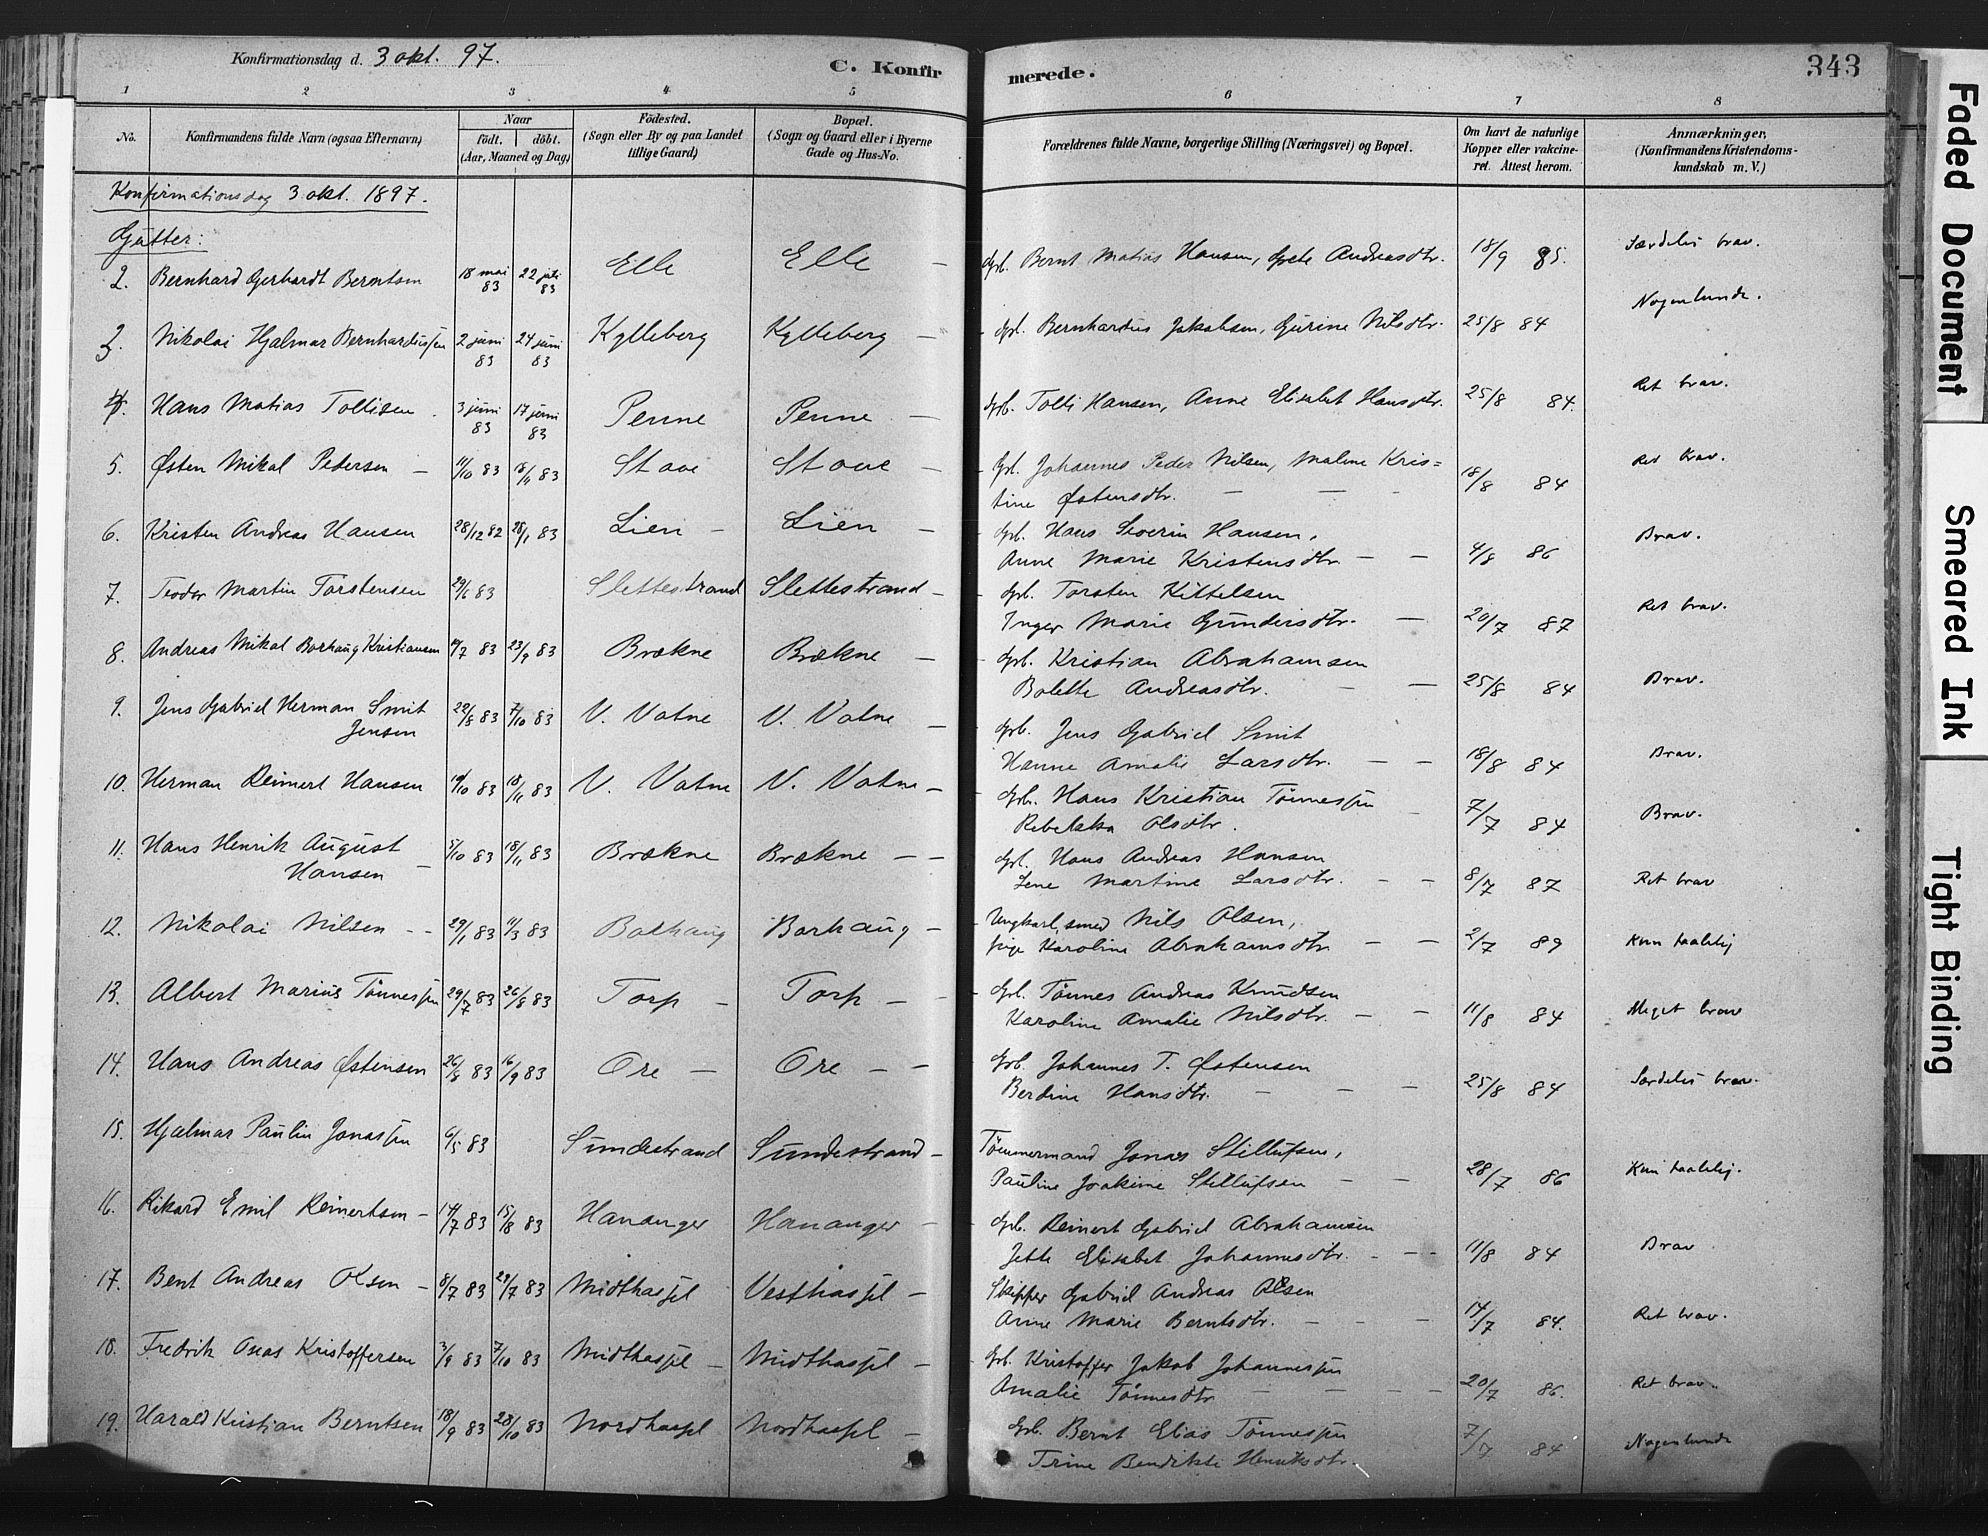 Konfirmationsdag d. 3 okt. 97.
C. Konfirmerede.
343
1 2 3 4 5 6 7 8
No.
Konfirmandens fulde Navn (ogsaa Efternavn)
Naar
födt. döbt.
(Aar, Maaned og Dag)
Födested.
(Sogn eller By og paa Landet
tillige Gaard)
Bopæl.
(Sogn og Gaard eller i Byerne
Gade og Hus-No.
Forældrenes fulde Navne, borgerlige Stilling (Næringsvei) og Bopæl.
Om havt de naturlige
Kopper eller vakcine-
ret. Attest herom.
Anmærkninger,
(Konfirmandens Kristendoms-
kundskab m. V.)
Konfirmationsdag 3 okt. 1897.
Gutter:
2. Bernhard Gerhardt Berntsen 18 mai 83 22 juli 83 Elle Elle – Grb. Bernt Matias Hansen, Grete Andreasdtr. 18/9 85. Særdeles brav.
3. Nikolai Hjalmar Bernhardussen 2 juni 83 24 juni 83 Kylleberg Kylleberg – Grb. Bernhardus Jakobsen, Gurine Nilsdtr. 25/8 84 Nogenlunde.
4. Hans Matias Tollisen. 3 juni 83 17 juni 83 Penne Penne – Grb. Tolli Hansen, Anne Elisabet Hansdtr. 25/8 84. Ret brav.
5. Østen Mikal Pedersen – 11/10 83 18/11 83 Stave Stave – Grb. Johannes Peder Nilsen, Malene Kris=
tine Østensdtr. – – 18/8 84 Ret brav.
6. Kristen Andreas Hansen 28/12 82 28/1 83 Lien – Lien – Grb. Hans Severin Hansen,
Anne Marie Kristensdtr – – 4/8 86 Brav.
7. Teodor Martin Torstensen 29/6 83 Slettestrand Slettestrand – Grb. Torsten Kittelsen
Inger Marie Gundersdtr. – 20/7 87 Ret brav.
8. Andreas Mikal Borhaug Kristiansen 19/7 83 23/9 83 Brækne Brækne – Grb. Kristian Abrahamsen
Bolette Andreasdtr. – – 25/8 84 Brav.
9. Jens Gabriel Herman Smit
Jensen 22/8 83 7/10 83 V. Vatne V. Vatne – Grb. Jens Gabriel Smit
Hanne Amalie Larsdtr. – – 18/8 84 Brav.
10. Herman Reinert Hansen 19/10 83 18/11 83 V. Vatne V. Vatne – Grb. Hans Kristian Tönnessen
Rebekka Olsdtr. 7/7 84 Brav.
11. Hans Henrik August
Hansen – 5/10 83 18/11 83 Brækne Brækne – – Grb. Hans Andreas Hansen
Lene Martine Larsdtr. – – 8/7 87 Ret brav
12. Nikolai Nilsen – – 29/1 83 11/3 83 Borhaug Borhaug – Ungkarl, smed Nils Olsen,
pige Karoline Abrahamsdtr – – 2/7 89 Kun taalelig
13. Albert Marius Tönnessen 29/7 83 26/8 83 Torp – Torp – – Grb. Tönnes Andreas Knudsen
Karoline Amalie Nilsdtr. – – 11/8 84 Meget brav
14. Hans Andreas Østensen 26/8 83 16/9 83 Ore – Ore – – Grb. Johannes T. Østensen
Berdine Hansdtr. – – – 25/8 84 Særdeles brav.
15. Hjalmar Paulin Jonassen 6/5 83 Sundestrand Sundestrand – Tömmermand Jonas Stillufsen,
Pauline Joakime Stillufsen – – 28/7 86 Kun taalelig.
16. Rikard Emil Reinertsen – 14/7 83 15/8 83 Hananger Hananger – Grb. Reinert Gabriel Abrahamsen
Jette Elisabet Johannesdtr. – – – 11/8 84 Brav
17. Bent Andreas Olsen – 8/7 83 29/7 83 Midthassel Vesthassel – Skipper Gabriel Andreas Olsen
Anne Marie Berntsdtr. – – – 14/7 84. Ret brav.
18. Fredrik Onas Kristoffersen 3/9 83 7/10 83 Midthassel – Midthassel – Grb. Kristoffer Jakob Johannessen
Amalie Tönnesdtr – – – – 20/7 86. Ret brav.
19. Harald Kristian Berntsen 18/9 83 28/10 83 Nordhassel Nordhassel – Grb. Bernt Elias Tönnessen
Trine Bendikte Henriksdtr. 7/7 84 Nogenlunde
Faded Document
Smeared Ink
Tight Binding